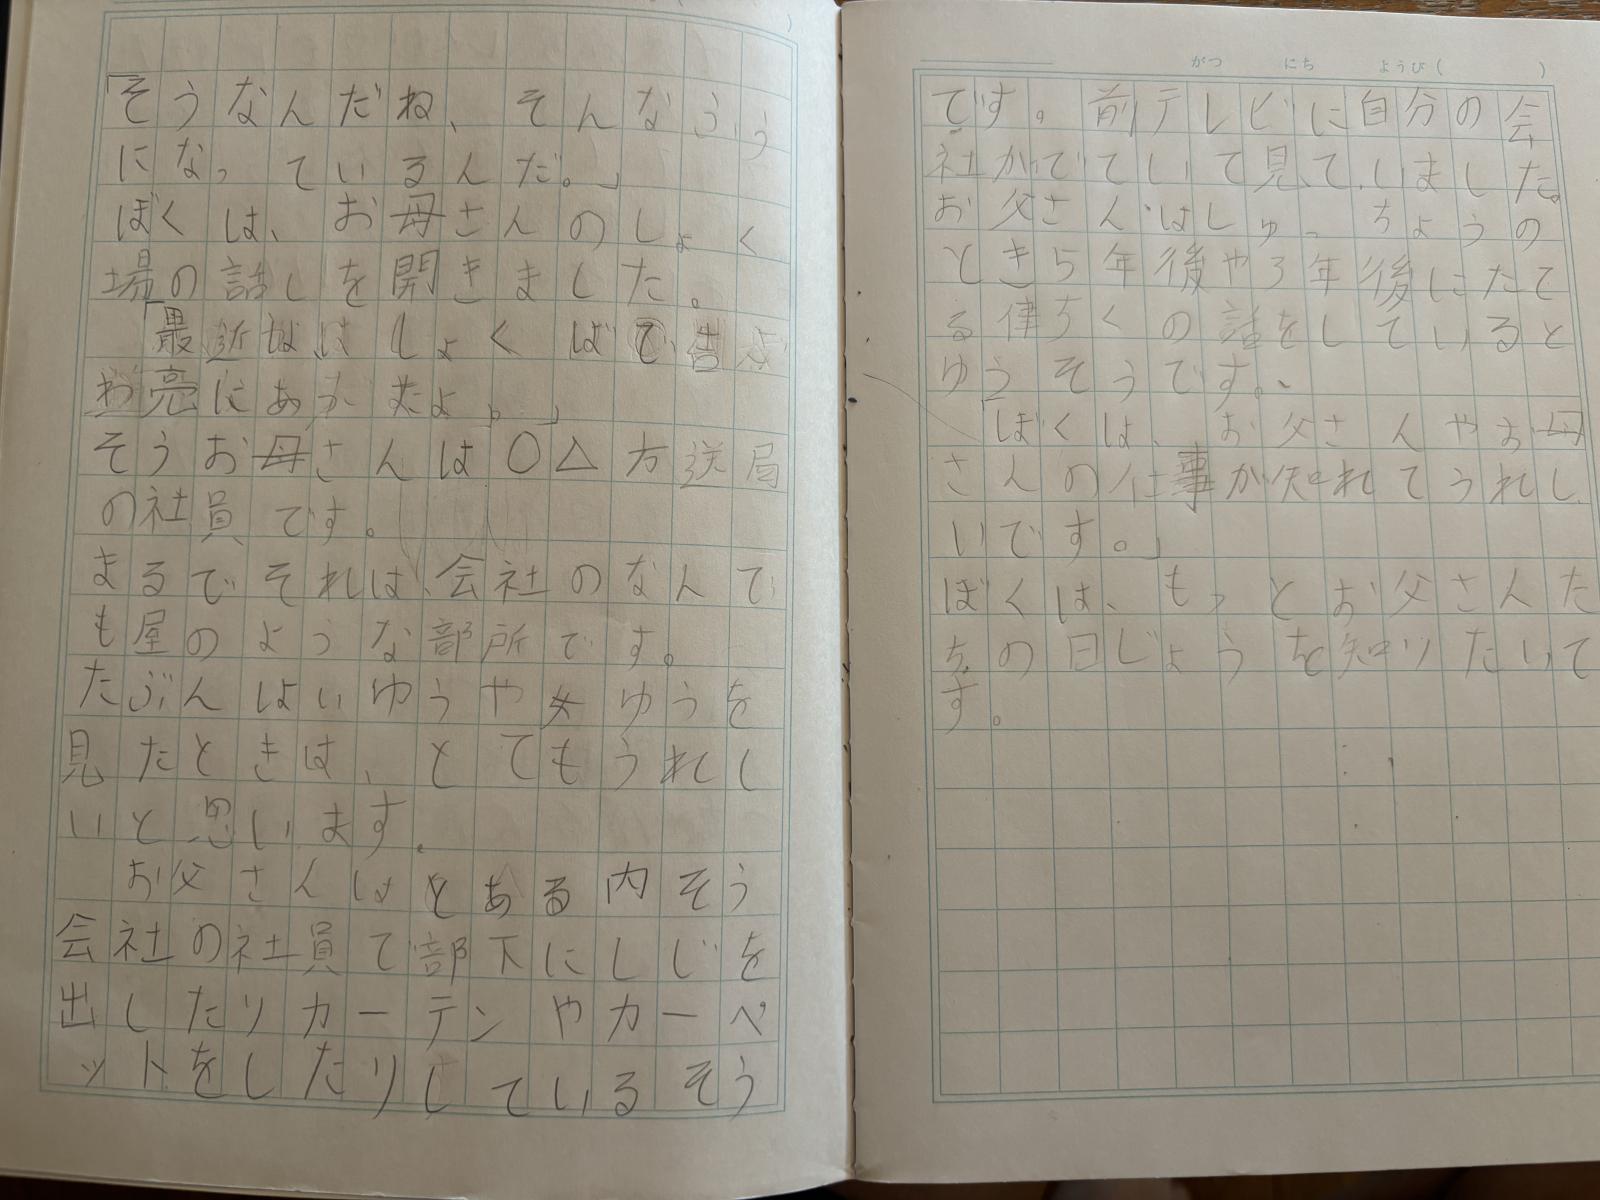 「そうなんだね、そんなふう
になっているんだ。」
ぼくは、お母さんのしょく
場の話しを開きました。
「最近はしょくばで
亮にあ たよ。」
そうお母さんは○△方送局
の社員です。
まるでそれは、会社のなんで
も屋のような部所です。
たぶんはいゆうや女ゆうを
見たときは、とてもうれし
いと思います。
お父さんはとある内そう
会社の社員で部下にしじを
出したりカーテンやカーペ
ットをしたりしているそう
がつ にち ようび( )
です。前テレビに自分の会
社がでていて見ていました。
お父さんはしゅっちょうの
とき5年後や3年後にたて
る ちくの話をしていると
ゆうそうです。
「ぼくは、お父さんやお母
さんの仕事が知れてうれし
いです。」
ぼくは、もっとお父さんた
ちの日じょうを知りたいで
す。